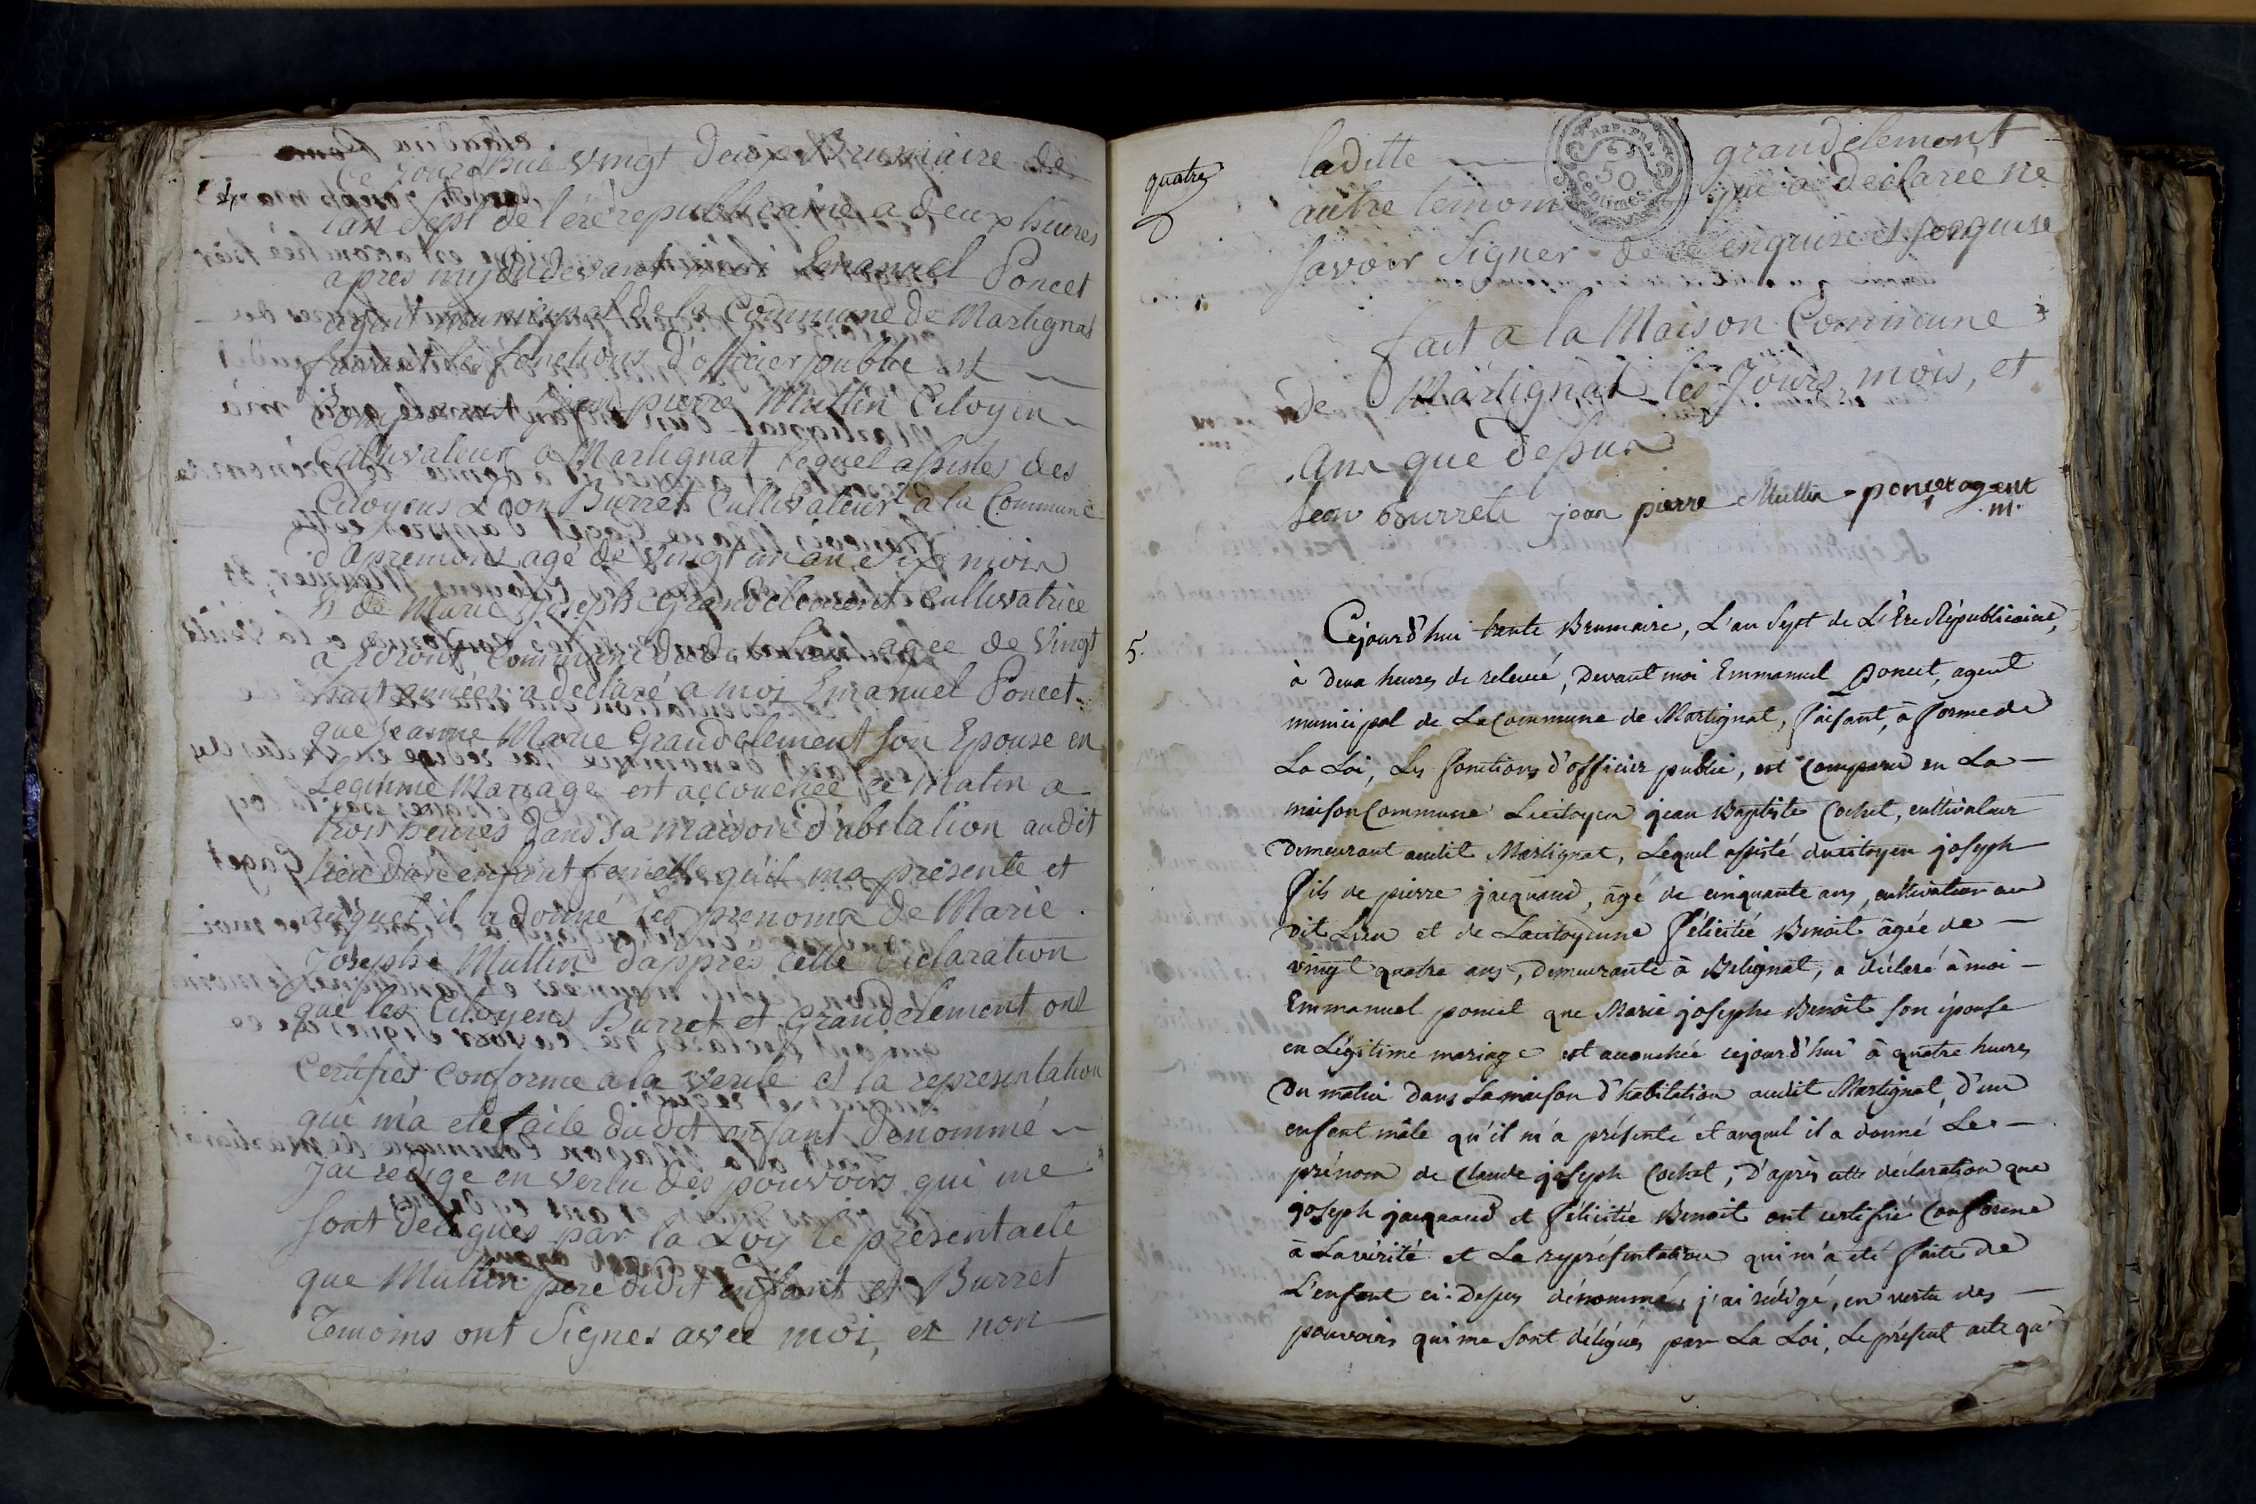 4
Ce jourdhui vingt deux Brumaire de
lan Sept de l'ére republicaine a deux heures
apres mydi devant moi Emanuel Poncet
agent municipal de la Commune de Martignat
faisant les fonctions d'officier public est
Comparu jean pierre Mullin Citoyen
Cultivateur a Martignat lequel assistes des
Citoyens Leon Burret Cultivateur a la Commune
d'apremont, agé de vingt un an Six mois
et de Marie Josephe Grandclement Cultivatrice
a Commune dud. agée de Vingt
huit années a declaré a moi Emanuel Poncet
que jeanne Marie Grandclement son Epouse en
Legitime Mariage est accouchée ce Matin a
trois heures dans sa maison d'abitation audit
lieu d'un enfant femelle qu'il ma presenté et
auquel il a donné les prenoms de Marie
Josephe Mullin dappres cette declaration
que les Citoyens Burret et Grandclement ont
Certifies Conforme a la verité et la representation
qui m'a eté faite dudit enfant denommé
J'ai redigé en vertu des pouvoirs qui me
sont delegués par la Loy le present acte
que Mullin pere dudit enfant et Burret
Temoins ont Signes avec moi, et non
quatre
laditte grandclement
autre temoin qui a declarée ne
savoir Signer de ce enquise et requise
fait a la Maison Commune
de Martignat les Jours, mois, et
ans que dessus
Leon burret jean pierre Mullin poncet agent
m.
5.
Cejourd'hui trente Brumaire, L'an Sept de L'Ere Républicaine,
à deux heures de relevée, Devant moi Emmanuel Poncet, agent
municipal de La Commune de Martignat, faisant, à forme de
La Loi, Les fonctions d'officier public, est Comparu en La
maison Commune Le citoyen jean Baptiste Cochet, cultivateur
Demeurant audit Martignat, Lequel assisté du citoyen joseph
fils de pierre jacquand, âgé de cinquante ans, cultivateur au
dit Lieu et de La citoyenne félicitée Benoit âgée de
vingt quatre ans, Demeurante à Belignat, a déclaré à moi
Emmanuel poncet que Marie josephe Benoit son épouse
en Légitime mariage est accouchée cejourd'hui à quatre heures
Du matin Dans sa maison d'habitation audit Martignat, D'un
enfant mâle qu'il m'a présenté et auquel il a donné Le
prénom de Claude joseph Cochet, D'après cette déclaration que
joseph jacquand et félicitée Benoit ont certifié Conforme
à La vérité et La représentation qui m'a été faite de
L'enfant ci-Dessus dénommé, j'ai rédigé, en vertu des
pouvoirs qui me sont délégués par La Loi, Le présent acte que